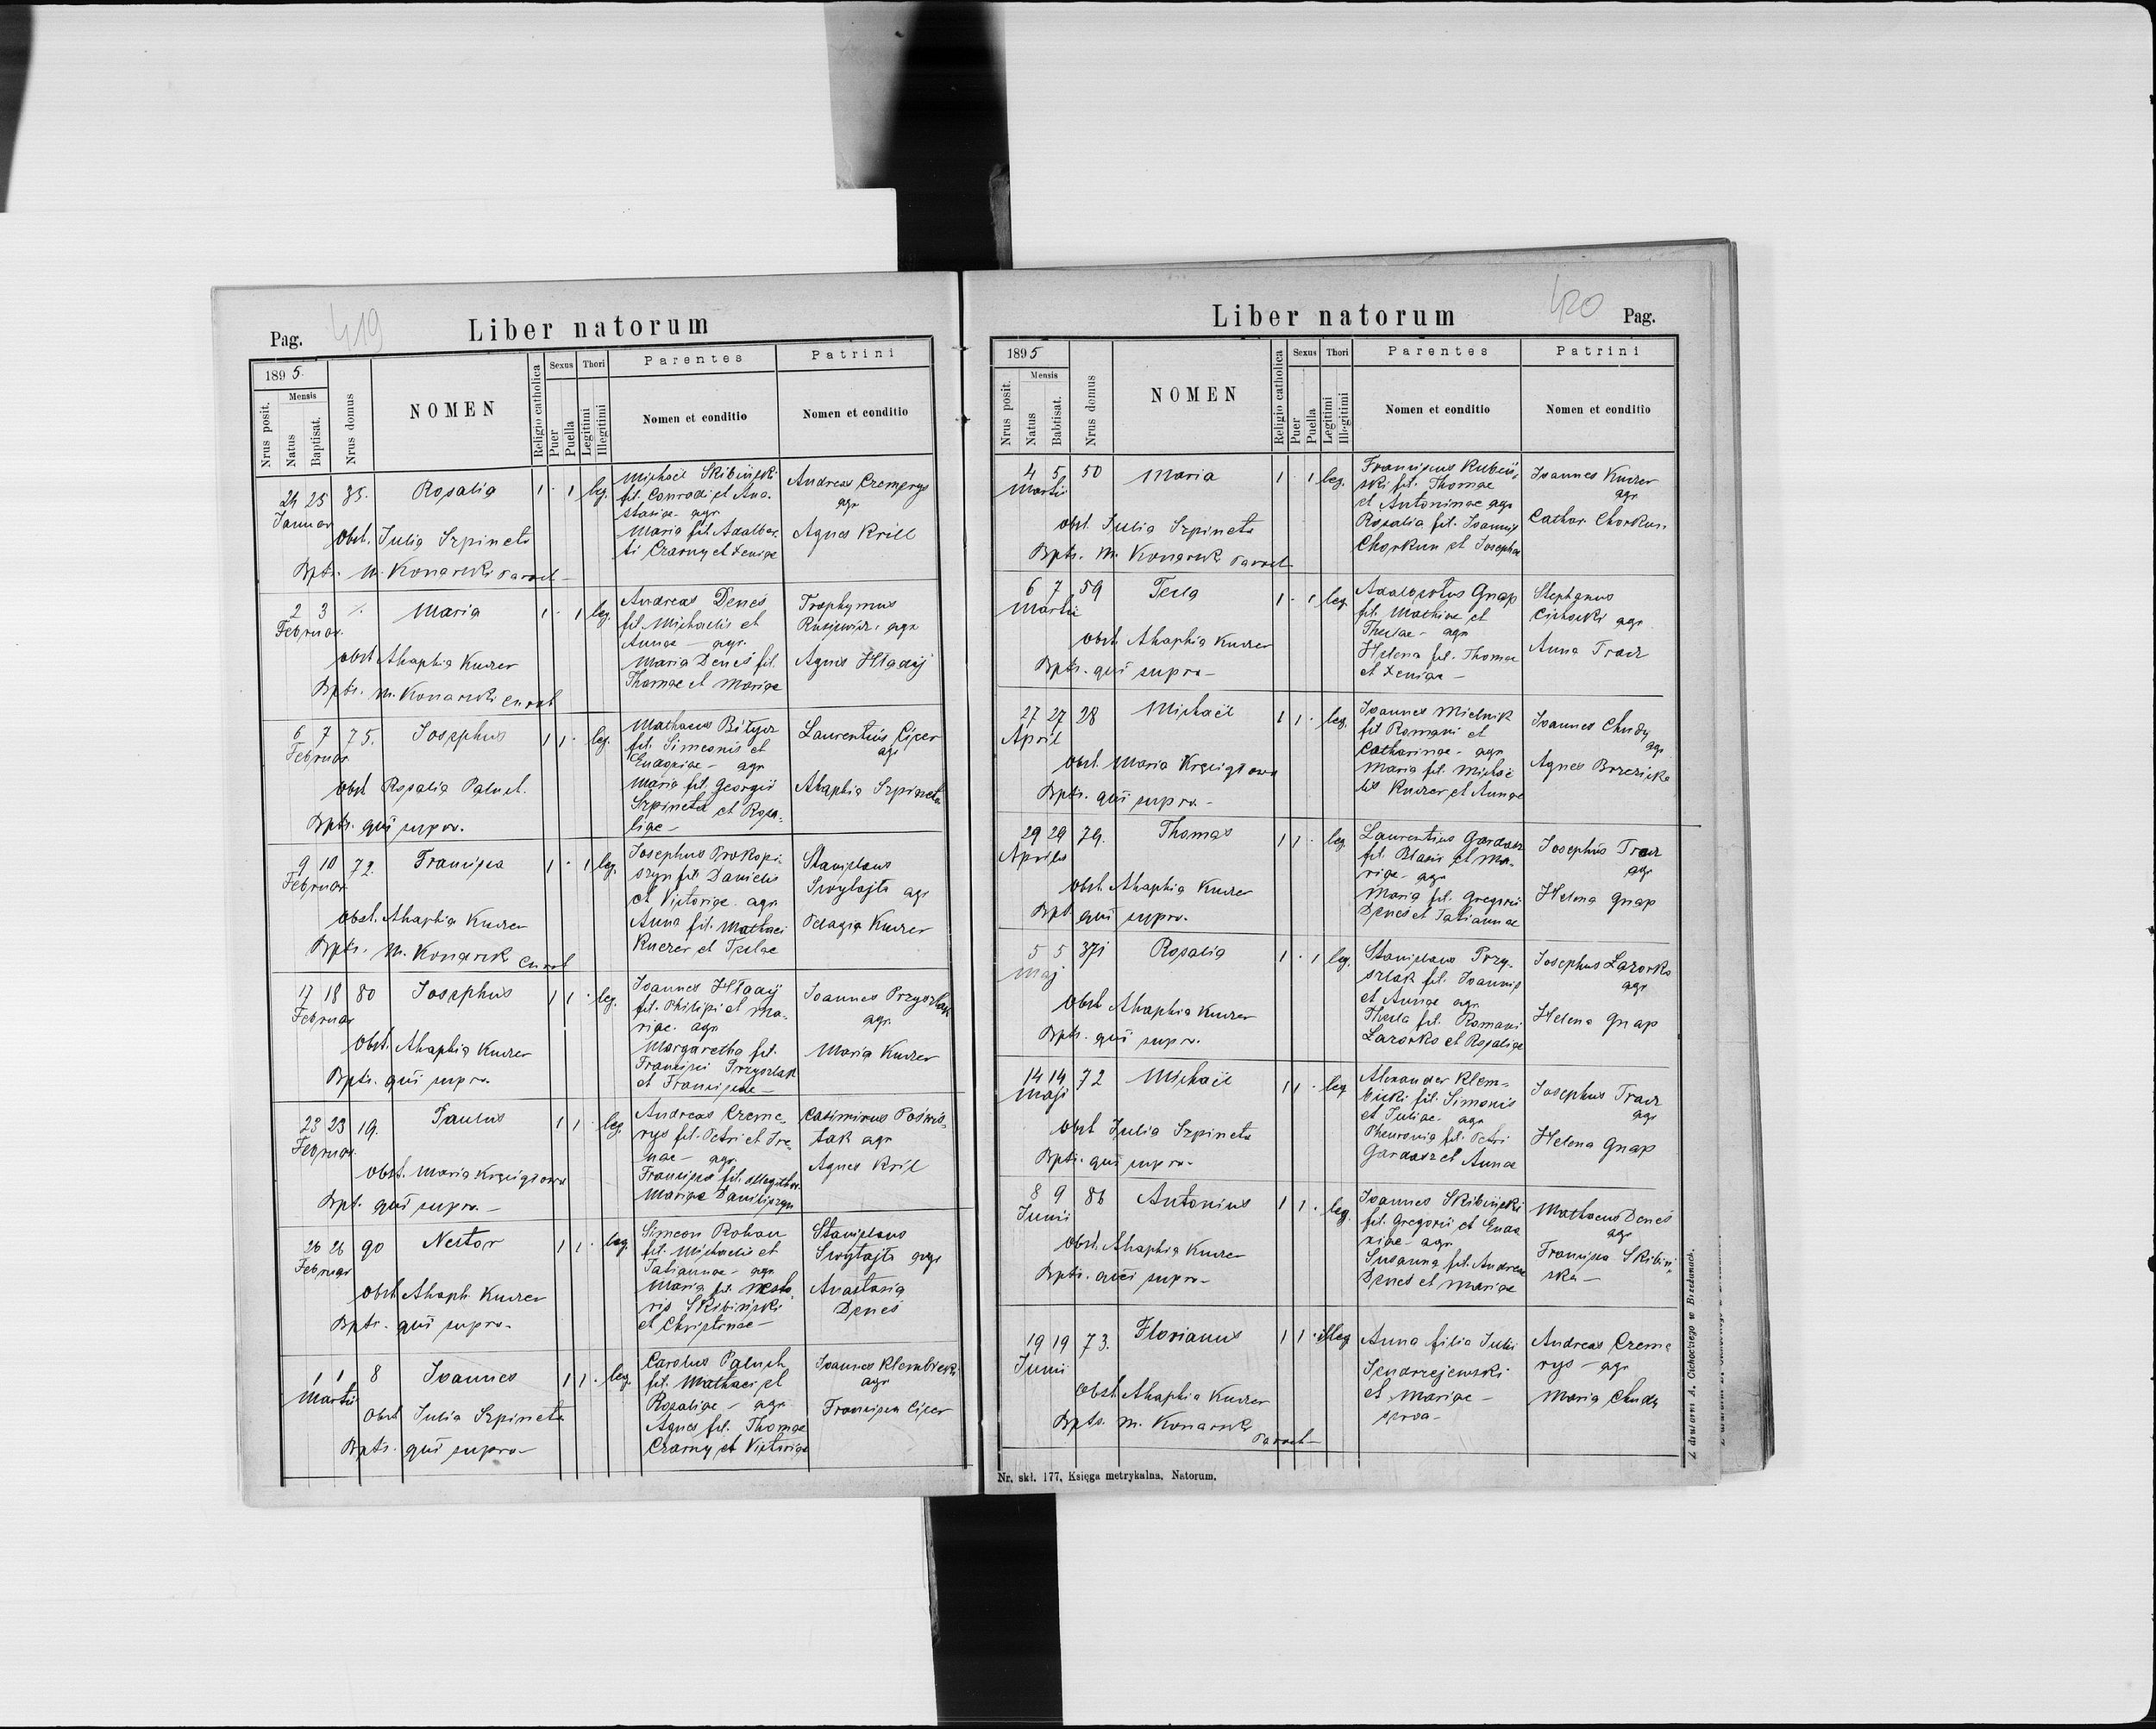 Pag. 419
Liber natorum
1895.
Nrus posit.
Mensis
Natus
Baptisat.
Nrus domus
NOMEN
Religio catholica
Sexus
Puer
Puella
Thori
Legitimi
Illegitimi
Parentes
Nomen et conditio
Patrini
Nomen et conditio
24 25 85. Rosalia 1 · 1 leg.
Januar
Michael Skibiński
fil. Conradi et Ana-
stasiae agr
Maria fil. Adalber-
ti Czarny et Xeniae
Andreas Czemerys
agr
Agnes Krill
obst. Julia Szpineta
Bpts. M. Konarski Paroch
2 3 Maria 1 · 1 leg.
Februar.
Andreas Deneś
fil. Michaelis et
Annae — agr.
Maria Deneś fil.
Thomae et Mariae
Trophymus
agr
Agnes Hładij
obst Ahaphia Kuczer
Bpts. M. Konarski
6 7 75. Josephus 1 1 · leg.
Februar
Mathaeus
fil. Simeonis et
Eudoxiae — agr
Maria fil. Georgii
Szpineta et Rosa-
liae —
Laurentius Ciper
agr
Ahaphia Szpineta
obst Rosalia Paluch.
Bpts. qui supra.
9 10 72. Francisca 1 · 1 leg
Februar
Josephus Prokopi-
szyn fil. Danielis
et Victoriae agr
Anna fil. Mathaei
Kuczer et Teclae
Stanislaus
agr
Pelagia Kuczer
obst. Ahaphia Kuczer
Bpts. M. Konarski
17 18 80 Josephus 1 1 · leg.
Februar
Joannes Hładij
fil. Philipi et Ma-
riae. agr
Margaretha fil.
Francisci Przyszlak
et Franciscae —
Joannes Przyszlak
agr
Maria Kuczer
obst. Ahaphia Kuczer
Bpts. qui supra.
23 23 19. Paulus 1 1 · leg.
Februar.
Andreas Czeme-
rys fil. Petri et Ire-
nae — agr.
Francisca fil. illegitima
Mariae Daniliszyn
Casimirus
agr
Agnes Kril
obst. Maria
Bpt. qui supra. —
26 26 90 Nestor 1 1 · leg.
Februar
Simeon Rohan
fil. Michaelis et
Tatiannae — agr
Maria fil. Nesto-
ris Skibiński
et Christinae —
Stanislaus
agr
Anastasia
Deneś
obst Ahaph. Kuczer
Bpts. qui supra.
1 1 8 Joannes 1 1 · leg.
Martii
Carolus Paluch
fil. Mathaei et
Rosaliae — agr
Agnes fil. Thomae
Czarny et Victoriae
Joannes Klembicki
agr
Francisca Ciper
Obst Julia Szpineta
Bpts. qui supra —
Liber natorum
420 Pag.
1895
Nrus posit.
Mensis
Natus
Babtisat.
Nrus domus
NOMEN
Religio catholica
Sexus
Puer
Puella
Thori
Legitimi
Illegitimi
Parentes
Nomen et conditio
Patrini
Nomen et conditio
4 5 50 Maria 1 · 1 leg.
Martii
Franciscus
ski fil. Thomae
et Antoninae agr
Rosalia fil. Joannis
Chorkun et Josephae
Joannes Kuczer
agr
Cathar. Chorkun
obst. Julia Szpineta
Bpts. M. Konarski Paroch
6 7 59 Tecla 1 · 1 leg
Martii
Adalbertus Gnap
fil. Mathiae et
Theclae — agr
Helena fil. Thomae
et Xeniae —
Stephanus
Cichocki agr
Anna Tracz
obst Ahaphia Kuczer
Bpts. qui supra —
27 27 28 Michael 1 1 · leg.
April
Joannes Mielnik
fil Romani et
Catharinae — agr
Maria fil. Michae-
lis Kuczer et Annae
Joannes Chudy
agr
Agnes Brzezicka
obst. Maria
Bpts. qui supra —
29 29 79. Thomas 1 1 · leg
Aprilis
Laurentius Gardasz
fil. Blasii et Ma-
riae — agr
Maria fil. Gregorii
Deneś et Tatiannae
Josephus Tracz
agr
Helena Gnap
obst Ahaphia Kuczer
Bpt qui supra.
5 5 371 Rosalia 1 · 1 leg.
Maj
Stanislaus Przy-
szlak fil. Joannis
et Annae agr
Thecla fil. Romani
Lazorko et Rosaliae
Josephus Lazorko
agr
Helena Gnap
Obst Ahaphia Kuczer
Bpts. qui supra.
14 14 72 Michael 1 1 · leg
Maji
Alexander Klem-
bicki fil. Simonis
et Juliae. agr
Phewronia fil. Petri
Gardasz et Annae
Josephus Tracz
agr
Helena Gnap
Obst Julia Szpineta
Bpts. qui supra.
8 9 86 Antonius 1 1 · leg.
Junii
Joannes Skibiński
fil. Gregorii et Eudo-
xiae — agr
Susanna fil. Andreae
Deneś et Mariae
Mathaeus Deneś
agr
Francisca Skibiń-
ska —
Obst. Ahaphia Kuczer
Bpts. qui supra —
19 19 73. Florianus 1 1 · illeg
Junii
Anna filia Julii
Jendrzejewski
et Mariae —
Andreas Czeme
rys — agr
Maria Chudy
Obst Ahaphia Kuczer
Bpts. M. Konarski
Paroch —
Nr. skł. 177, Księga metrykalna, Natorum.
Z drukarni A. Cichockiego w Brzeżanach.